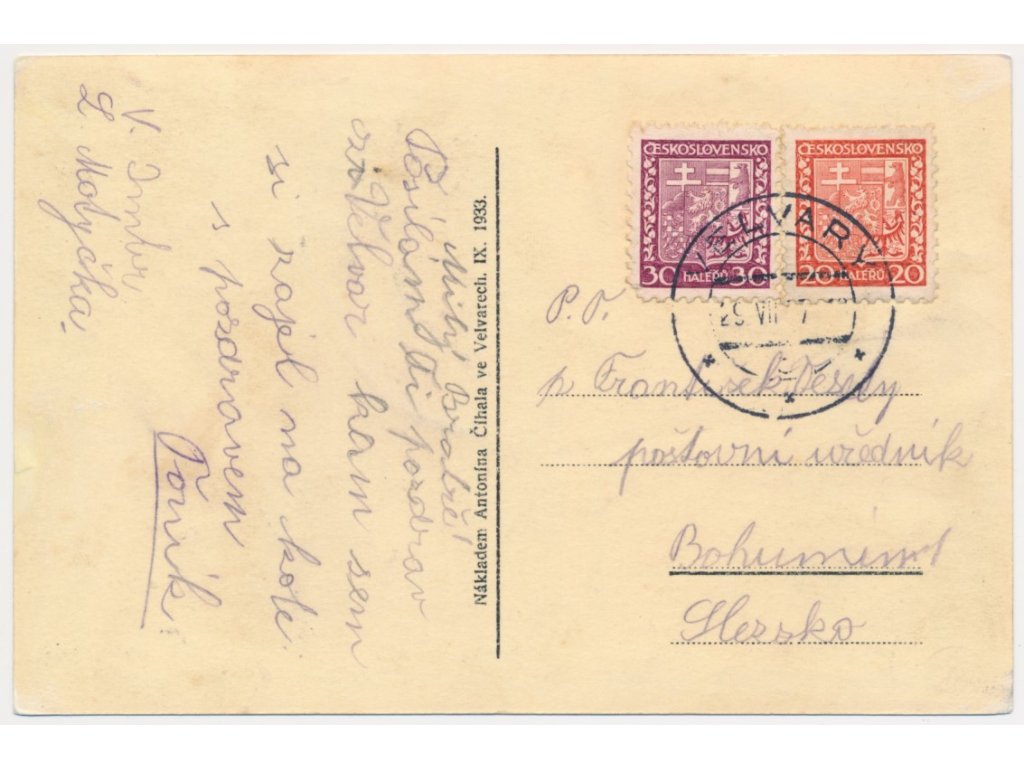 Milý Bratře!
Posílám Ti pozdrav
Velvar kam sem
si zajel na kole.
s pozdravem
Toník
V.
L. Motyčka.
Nákladem Antonína Číhala ve Velvarech. IX. 1933.
ČESKOSLOVENSKO
30 HALÉŘŮ 30
ČESKOSLOVENSKO
20 HALÉŘŮ 20
VELVARY
29. VII
P. T.
p František Veselý
poštovní úředník
Bohumín 1
Slezsko